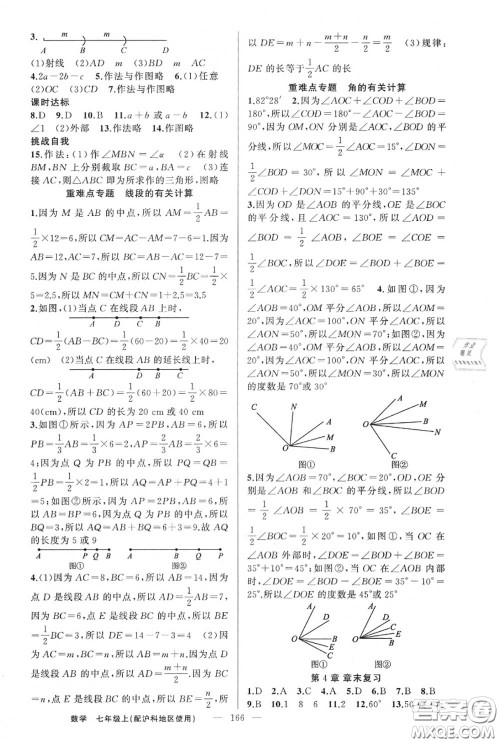 3.
(1)射线 (2)AD AD m (3)BD AD m
4.2a-2b-c 5.作法与作图略 6.(1)任意
(2)OC (3)CD 7.作法与作图略
课时达标
8.D 9.D 10.B 11.a+b 或 a-b 12.(1)
∠1 (2)外部 13.作图略 14.作图略
挑战自我
15.作法:(1)作∠MBN=∠α (2)在射线
BM,BN 上分别截取 BC=a,BA=c (3)连
接 AC,则△ABC 即为所求作的三角形,图略
重难点专题 线段的有关计算
1.因为 M 是 AB 的中点,所以 AM=1/2AB=
1/2×12=6,所以 CM=AC-AM=7-6=1.因为
AB=12,AC=7,所以 BC=AB-AC=12-7=
5,因为 N 是 BC 的中点,所以 CN=1/2BC=1/2×
5=2.5,所以 MN=CM+CN=1+2.5=3.5
2.如图,(1)当点 C 在线段 AB 上时,
A D C B
CD=1/2(AB-CB)=1/2(60-20)=1/2×40=20
(cm) (2)当点 C 在线段 AB 的延长线上时,
A D B C
CD=1/2(AB+CB)=1/2(60+20)=1/2×80=
40(cm) 所以 CD 的长为 20 cm 或 40 cm
3.如图①所示,因为 AP=2PB,AB=6,所以
PB=1/3AB=1/3×6=2,AP=2/3AB=2/3×6=
4;因为点 Q 为 PB 的中点,所以 PQ=QB=
1/2PB=1/2×2=1,所以 AQ=AP+PQ=4+1=
5;如图②所示,因为 AP=2PB,AB=6,所以
AB=BP=6,因为点 Q 为 PB 的中点,所以
BQ=3,所以 AQ=AB+BQ=6+3=9.故 AQ
的长度为 5 或 9
A P Q B
图①
A B Q P
图②
4.(1)因为 AC=8,BC=6,所以 AB=14,因为
点 D 是线段 AB 的中点,所以 AD=1/2AB=7,
因为 BC=6,点 E 是线段 BC 的中点,所以 BE=
1/2BC=3,所以 DE=14-7-3=4 (2)因为
AC=m,BC=n,所以 AB=m+n,因为点 D 是
线段 AB 的中点,所以 AD=(m+n)/2,因为 BC=n,
点 E 是线段 BC 的中点,所以 BE=1/2BC=n/2,所
以 DE=m+n-(m+n)/2-n/2=m/2 (3)规律:
DE 的长等于1/2AC 的长
重难点专题 角的有关计算
1.82°28′ 2.因为∠AOC+∠COD+∠BOD=
180°,所以∠AOC+∠BOD=180°-∠COD=
90°,因为 OM,ON 分别是∠AOC,∠BOD 的平分
1/2∠BOD=30°,所以∠MON=∠MOC+
∠COD+∠DON=15°+90°+30°=135°
3.因为 OD 是∠AOB 的平分线,OE 是∠BOC 的
平分线,且∠AOC=130°,所以∠BOD+∠BOE=
∠BOD=20°,所以∠BOE=∠COE=
1/2∠BOC=45° 4.如图①,因为
∠AOB=40°,OM 平分∠AOB,所以∠MOB=
20°,因为∠BOC=100°,ON 平分∠BOC,所以
∠BON=50°,所以∠MON=70°;如图②,因为
∠AOB=40°,OM 平分∠AOB,所以∠MOB=
20°,因为∠BOC=100°,ON 平分∠BOC,所以
∠BON=50°,所以∠MON=30°,所以∠MON
的度数是 70°或 30°
C N A M B O
图①
C N A M B O
图②
5.因为∠AOB=70°,∠BOC=20°,OD,OE 分别
是∠AOB 与∠BOC 的平分线,所以∠BOD=
1/2∠AOB=1/2×70°=35°,∠BOE=
1/2∠BOC=1/2×20°=10°,如图①,当 OC 在
∠AOB 外部时,∠DOE=∠BOD+∠BOE=
35°+10°=45°,如图②,当 OC 在∠AOB 内部
时,∠DOE=∠BOD-∠BOE=35°-10°=
25°,所以∠DOE 的度数是 45°或 25°
A D B E C O
图①
A D C E B O
图②
第 4 章 章末复习
1.D 2.A 3.C 4.C 5.D 6.B 7.B
8.B 9.B 10.1 8 6 11.60° 12.6 13.50
数学 七年级上(配沪科地区使用) 166